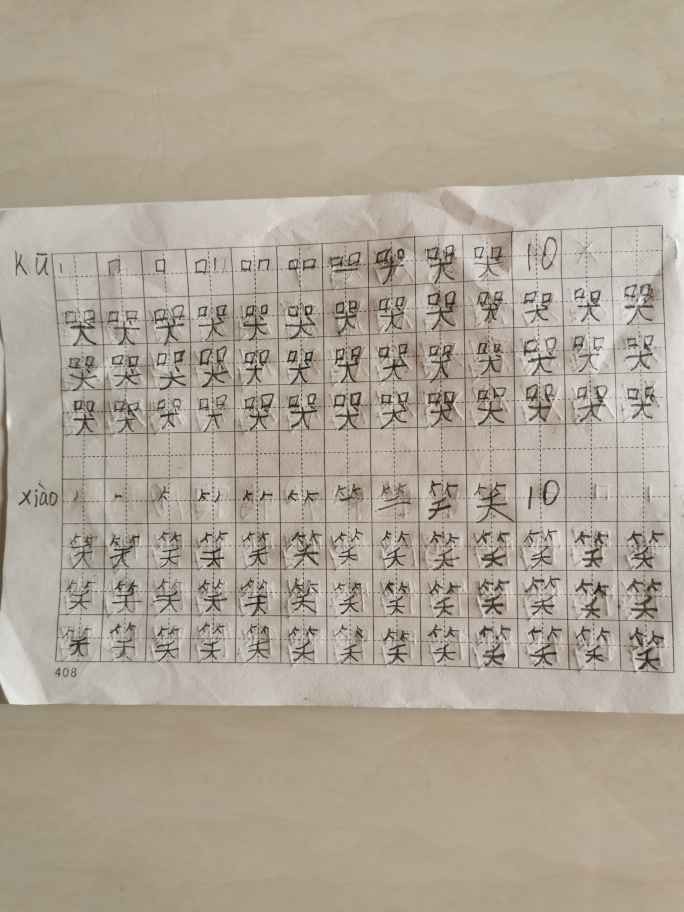 kū 丨 冂 口 口丨 口冂 口口 哭 哭 10
哭 哭 哭 哭 哭 哭 哭 哭 哭 哭 哭 哭 哭
哭 哭 哭 哭 哭 哭 哭 哭 哭 哭 哭 哭 哭
哭 哭 哭 哭 哭 哭 哭 哭 哭 哭 哭 哭 哭
xiào 丿 𠂉 笑 10
笑 笑 笑 笑 笑 笑 笑 笑 笑 笑 笑 笑 笑
笑 笑 笑 笑 笑 笑 笑 笑 笑 笑 笑 笑 笑
笑 笑 笑 笑 笑 笑 笑 笑 笑 笑 笑 笑 笑
408